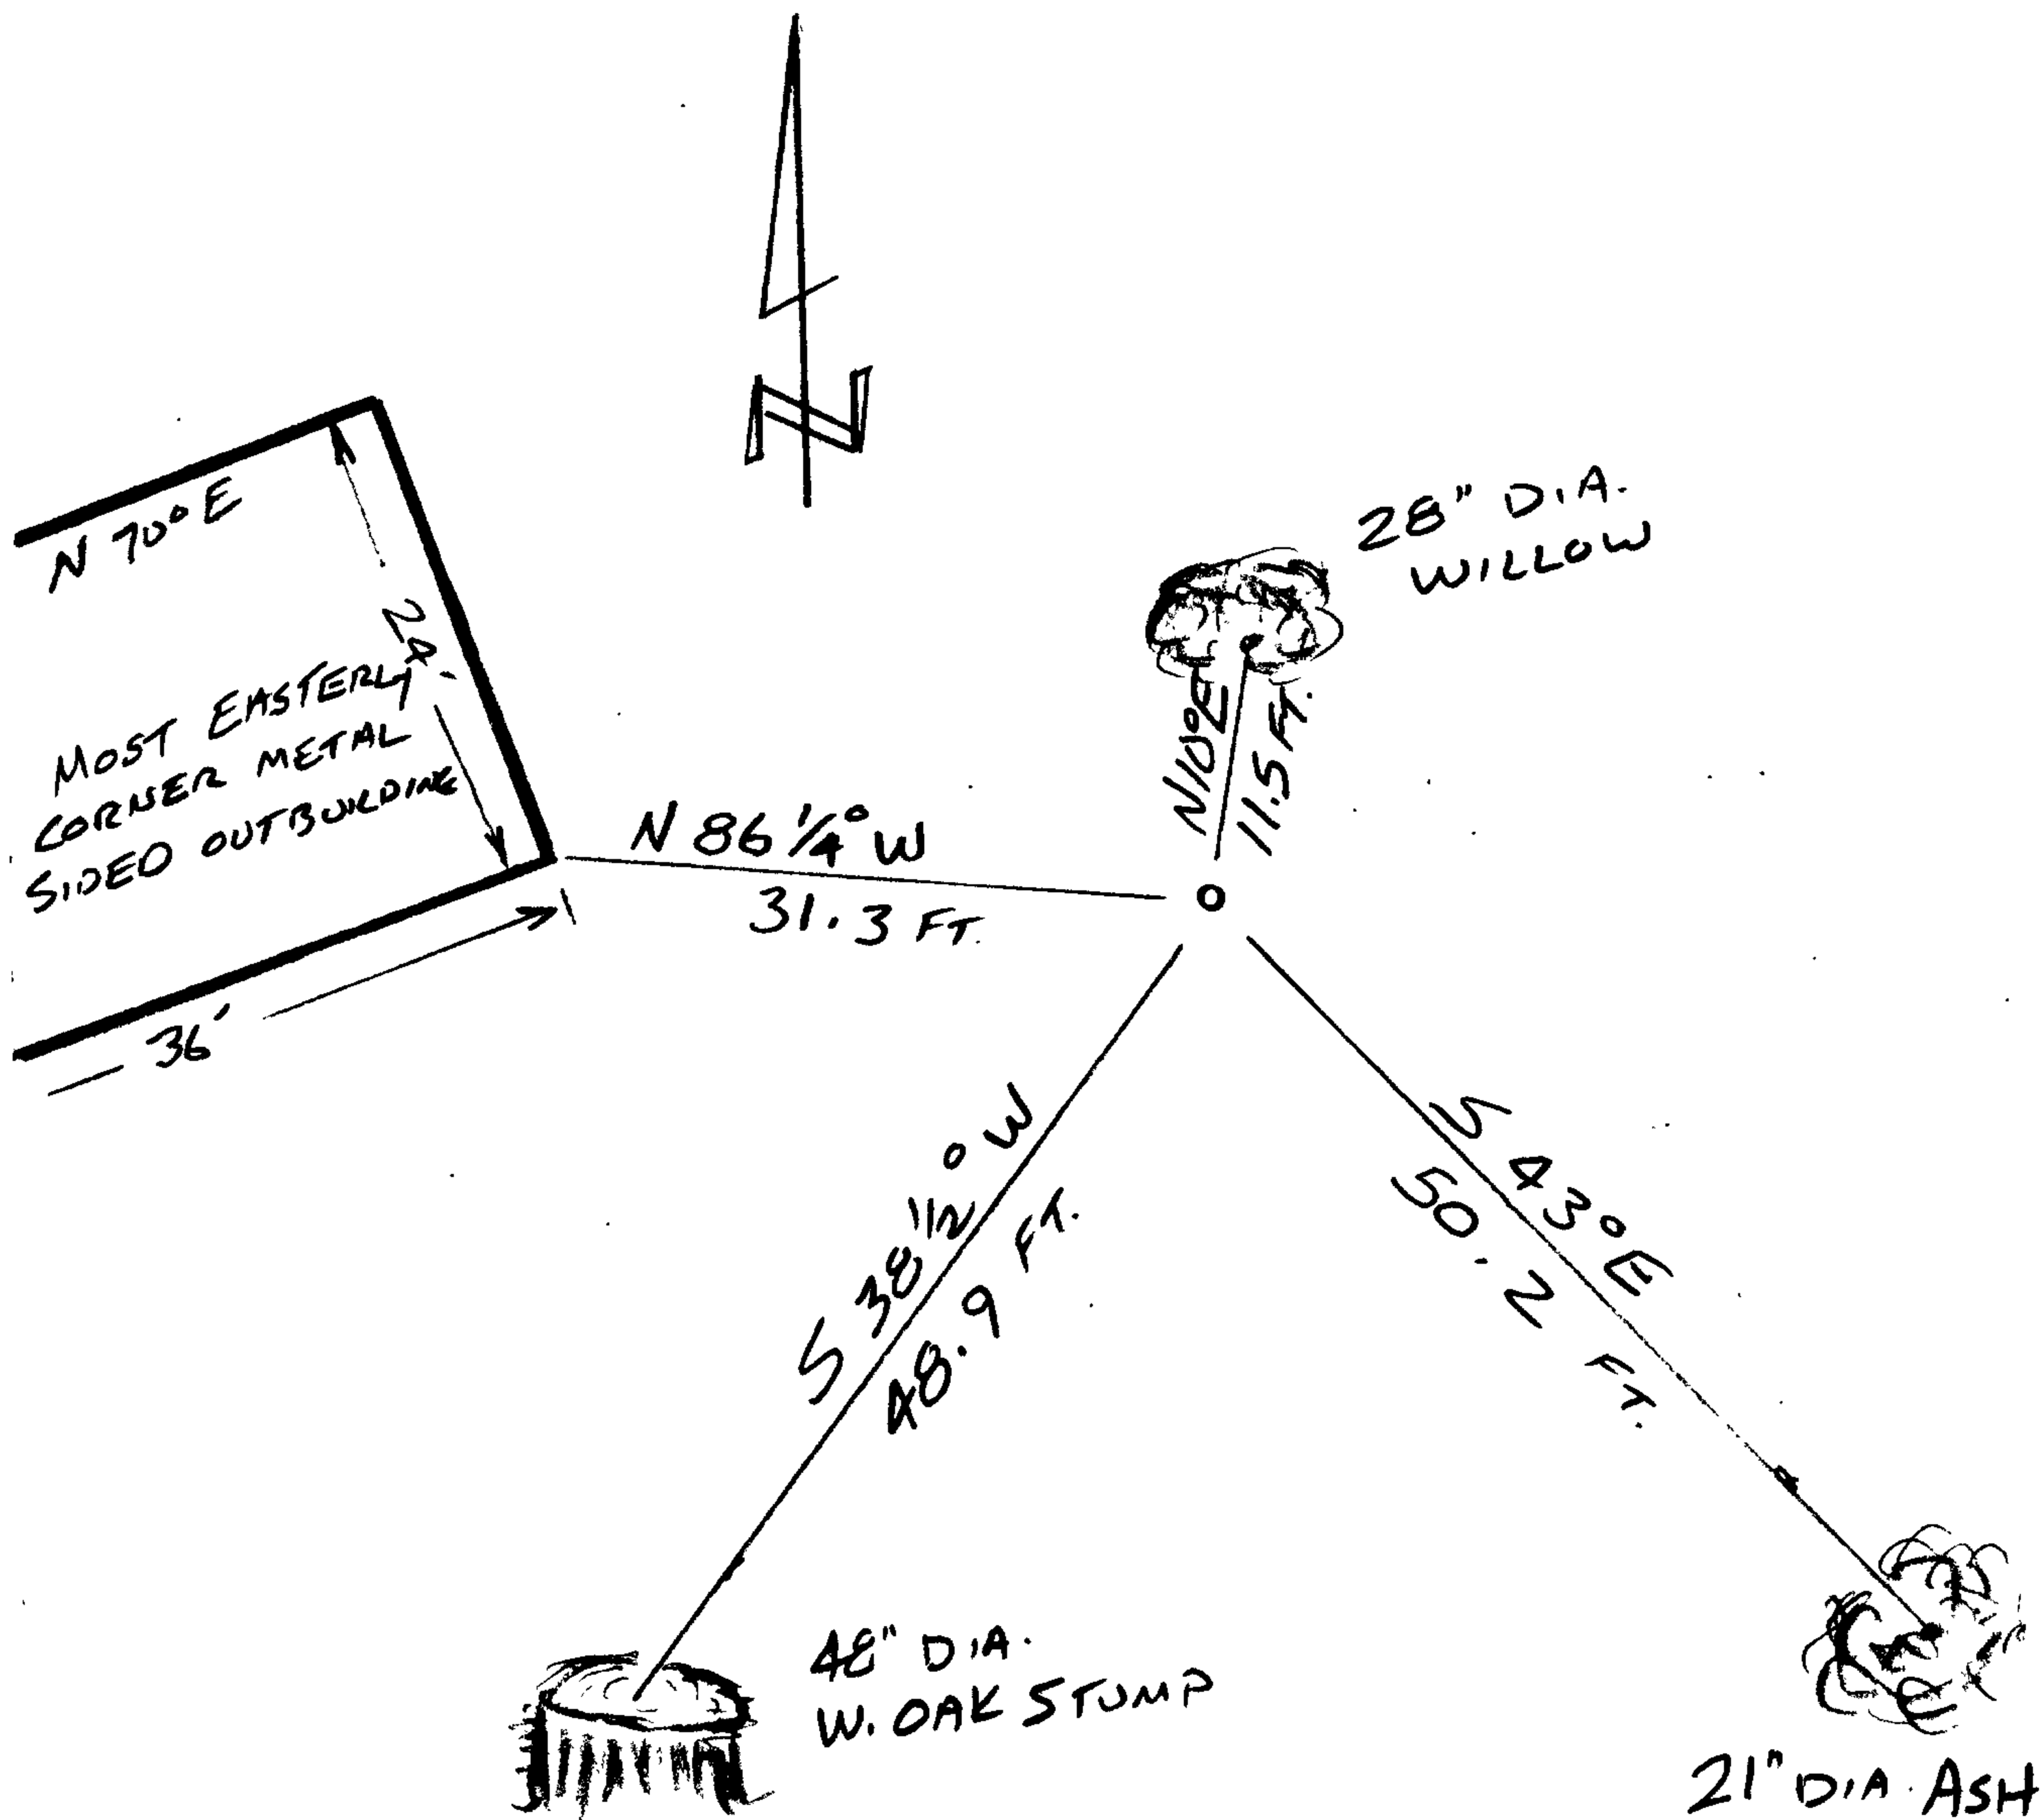 N
N 70° E
24'
MOST EASTERLY
CORNER METAL
SIDED OUTBUILDING
36'
28" DIA.
WILLOW
N10°E
11.5 FT.
N 86 1/4° W
31.3 FT.
S 38 1/2° W
48.9 FT.
S 43° E
50.2 FT.
48" DIA.
W. OAK STUMP
21" DIA. ASH